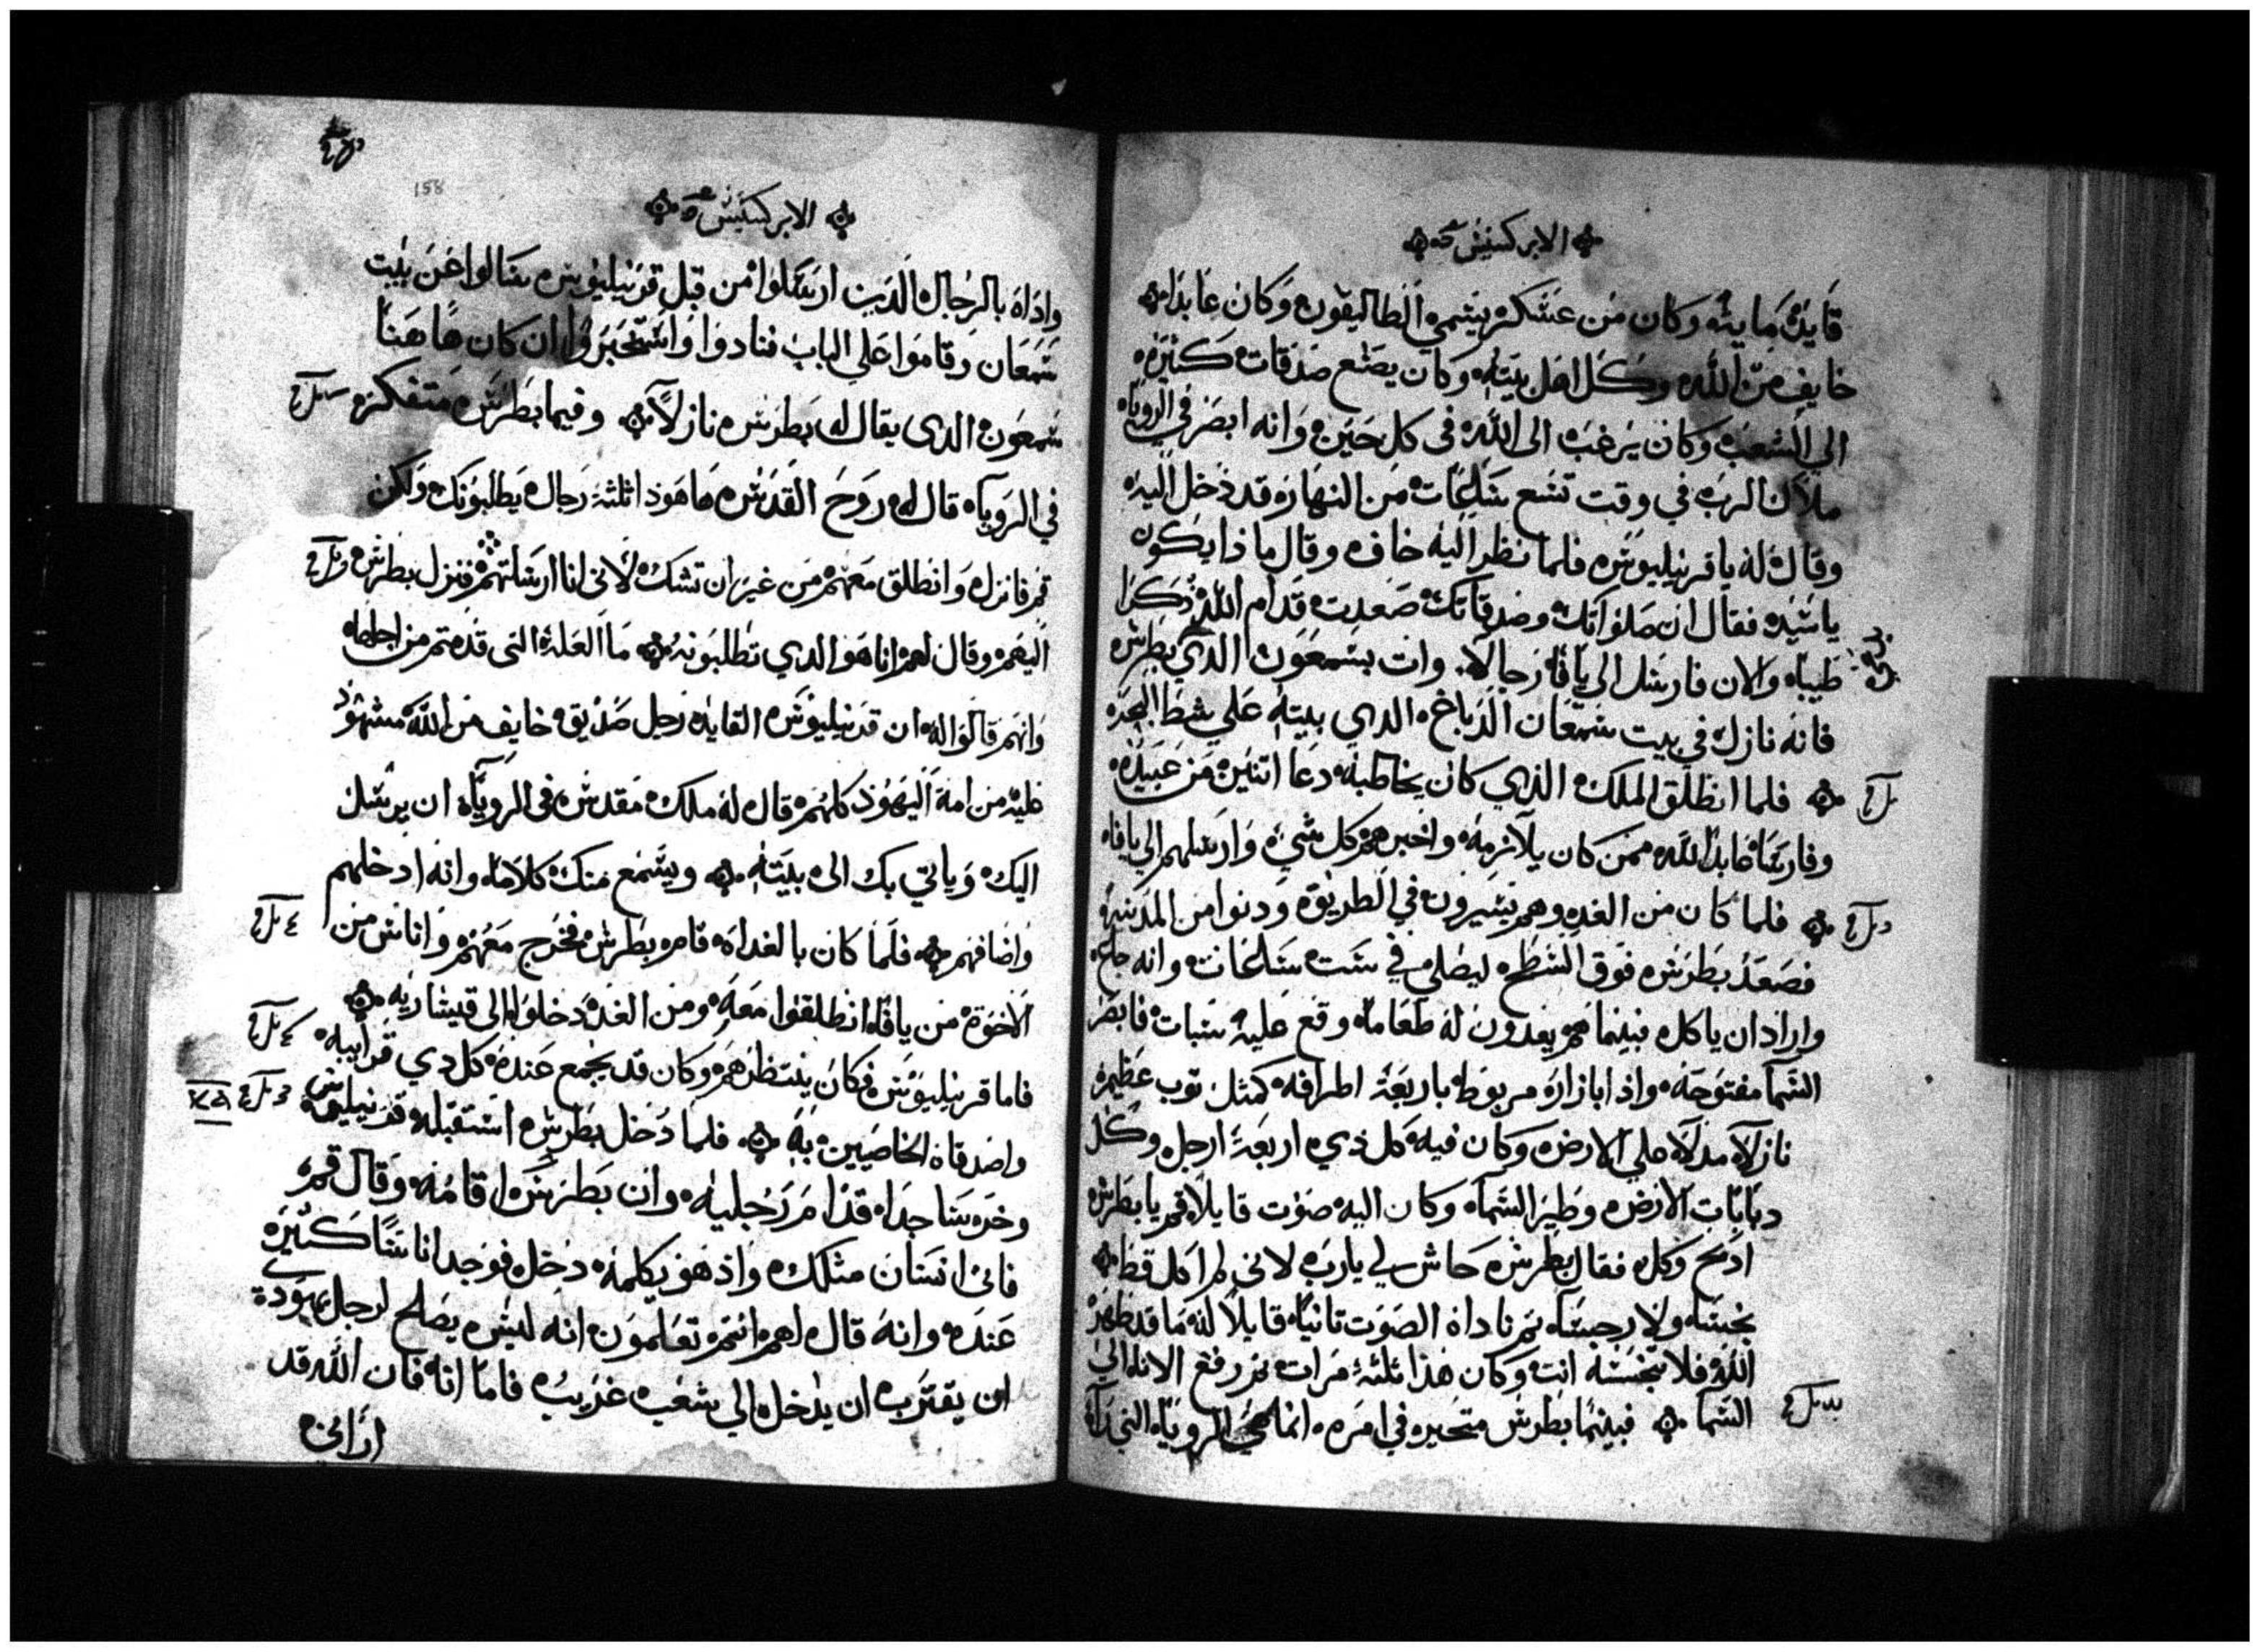 الابركسيس
قايد مايه وكان من عسكر يسمي الطاليقون وكان عابدا
خايف من الله وكل اهل بيته وكان يصنع صدقات كثيره
الي الشعب وكان يرغب الى الله في كل حين وانه ابصر في الروياه
ملاك الرب في وقت تسع ساعات من النهار قد دخل اليه
وقال له يا قرنيليوس فلما نظر اليه خاف وقال ماذا يكون
يا سيد فقال ان صلواتك وصدقاتك صعدت قدام الله ذكرا
طيبا والان فارسل الي يافا رجالا وات بسمعون الدي بطرس
فانه نازل في بيت سمعان الدباغ الدي بيته علي شط البحر
فلما انطلق الملك الذي كان يخاطبه دعا اتنين من عبيده
وفارسا عابدا لله ممن كان يلازمه واخبرهم كل شي وارسلهم الي يافا
فلما كان من الغد وهم يسيرون في الطريق ودنوا من المدينة
فصعد بطرس فوق السطح ليصلي في ست ساعات وانه جاع
واراد ان ياكل بينما هم يعدون له طعاما وقع عليه سبات فابصر
السما مفتوحه واذا بازار مربوط باربعة اطرافه كمثل توب عظيم
نازلا مدلا علي الارض وكان فيه كل ذي اربعة ارجل وكل
دبابات الارض وطير السما وكان اليه صوت قايلا قم يا بطرس
ادبح وكل فقال بطرس حاش لي يارب لاني لم اكل قط
نجسا ولا رجسا ثم ناداه الصوت تانيا قايلا له ما قد طهر
الله فلا تنجسه انت وكان هذا ثلثة مرات ثم رفع الاناء الي
السما فبينما بطرس متحير في امره انما هي الروياه التي راه
158
الابركسيس
واذا بالرجال الدين ارسلوا من قبل قرنيليوس سالوا عن بيت
سمعان وقاموا علي الباب فنادوا واستخبروا ان كان هاهنا
سمعون الدى يقال له بطرس نازلا وفيما بطرس متفكر
في الروياه قال له روح القدس ها هوذا ثلثة رجال يطلبونك ولكن
قم فانزل وانطلق معهم من غير ان تشك لاني انا ارسلتهم فنزل بطرس
اليهم وقال لهم انا هو الدي تطلبونه ما العلة التي قدمتم من اجلها
وانهم قالوا له ان قرنيليوس القايد رجل صديق خايف من الله مشهود
عليه من امة اليهود كلهم قال له ملك مقدس في الروياه ان يرسل
اليك وياتي بك الى بيته ويسمع منك كلاما وانه ادخلهم
واضافهم فلما كان بالغداه قام بطرس فخرج معهم واناس من
الاخوة من يافا انطلقوا معه ومن الغد دخلوا الى قيساريه
فاما قرنيليوس فكان ينتظرهم وكان قد جمع عنده كل دي قرابيه
واصدقاه الخاصيين به فلما دخل بطرس استقبله قرنيليوس
وخر ساجدا قدام رجليه وان بطرس اقامه وقال قم
فانى انسان مثلك واذ هو يكلمه دخل فوجد اناسا كثيره
عنده وانه قال لهم انتم تعلمون انه ليس يصلح لرجل يهودي
ان يقترب ان يدخل الي شعب غريب فاما انا فان الله قد
اراني